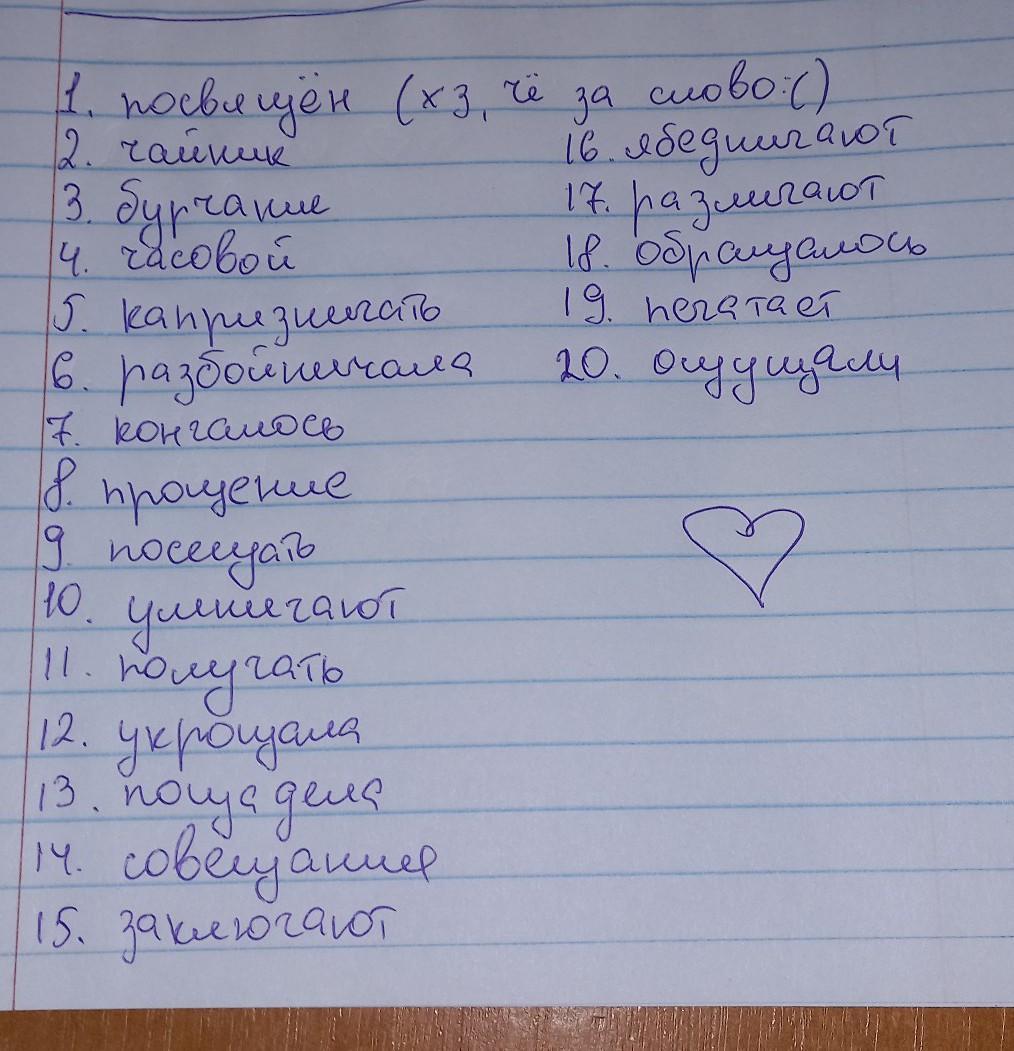 1. посвящён (хз, чё за слово:()
2. чайник
3. бурчание
4. часовой
5. капризничать
6. разбойничала
7. кончалось
8. прощение
9. посещать
10. умничают
11. получать
12. укрощала
13. пощадела
14. совещания
15. заключают
16. ябедничают
17. различают
18. обращалось
19. печатает
20. ощущали